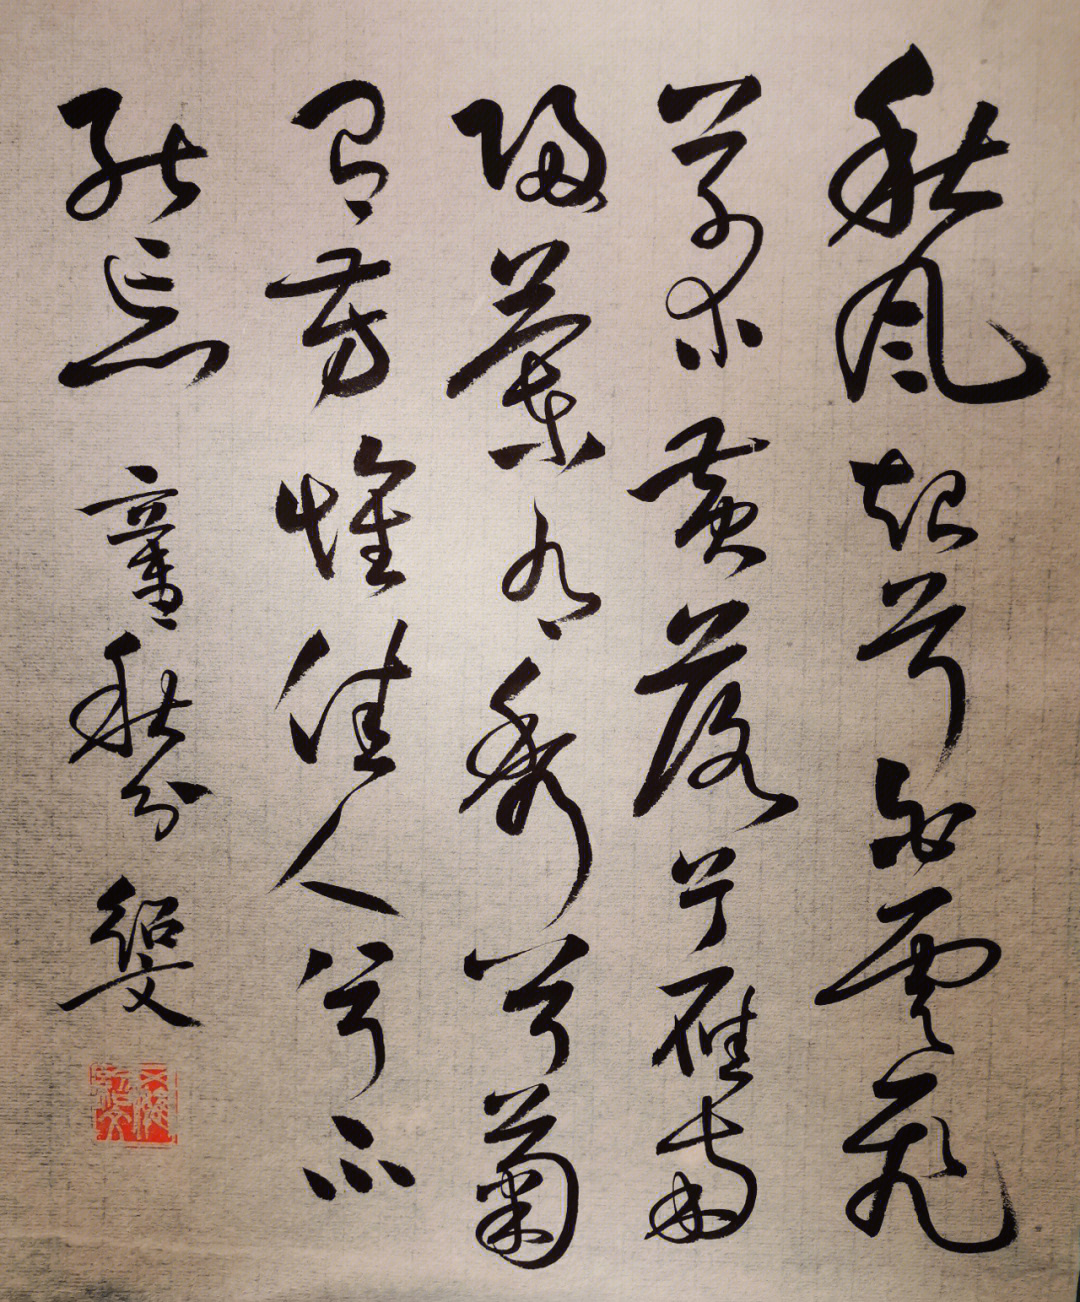 秋風起兮白雲飛
草木黃落兮雁南
歸蘭有秀兮菊
有芳惟佳人兮不
能忘 秋分 紹文